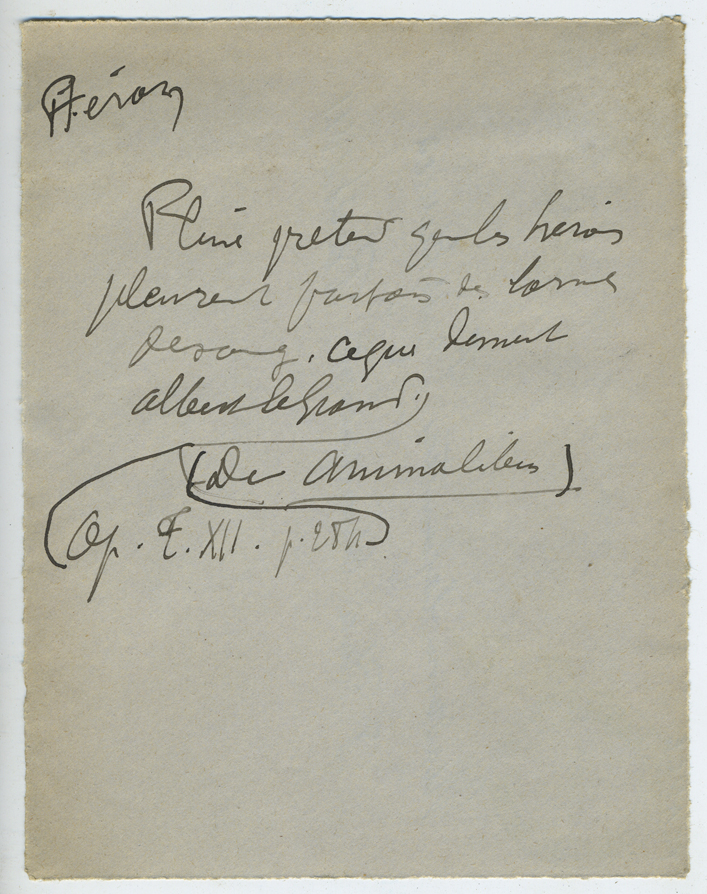 Héron
Pline prétend que les hérons
pleurent parfois des larmes
de sang, ce que dément
albert le Grand.
(De Animalibus)
Op. T. XII. p.